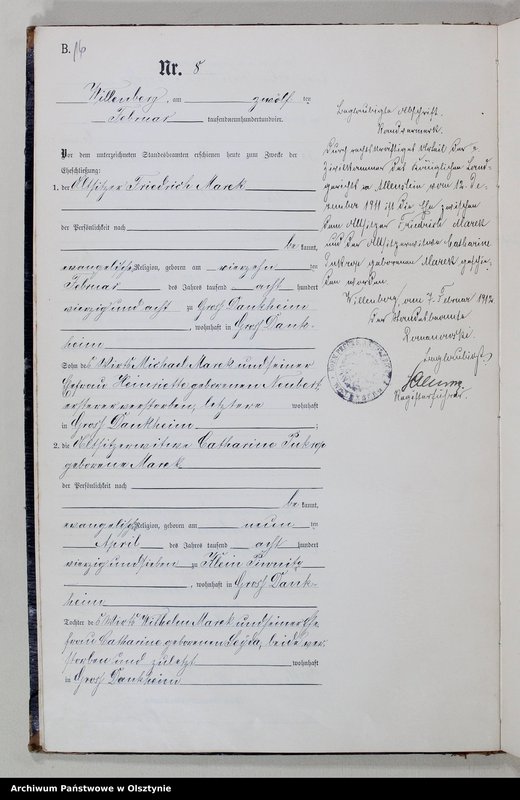 B. 16
Nr. 8
Willenberg, am zwölf ten
Februar tausendneunhundertundvier.
Vor dem unterzeichneten Standesbeamten erschienen heute zum Zwecke der
Eheschließung:
1. der Altsitzer Friedrich Marek
der Persönlichkeit nach
be kannt,
evangelischer Religion, geboren am vierzehn ten
Februar des Jahres tausend acht hundert
vierzig und acht zu Groß Dankheim
, wohnhaft in Groß Dank-
heim
Sohn des Wirts Michael Marek und seiner
Ehefrau Henriette geborenen Neubert
ersterer verstorben, letztere wohnhaft
in Groß Dankheim ;
2. die Altsitzerwitwe Catharine
geborene Marek
der Persönlichkeit nach
be kannt,
evangelischer Religion, geboren am neun ten
April des Jahres tausend acht hundert
vierzig und sieben zu Klein
, wohnhaft in Groß Dank-
heim
Tochter des Wirts Wilhelm Marek und seiner Ehe-
frau Catharine geborenen, beide ver-
storben und zuletzt wohnhaft
in Groß Dankheim
Beglaubigte Abschrift.
Randvermerk.
Durch rechtskräftiges Urteil der
Zivilkammer des Königlichen Land-
gerichts in Allenstein vom 12. De-
zember 1911 ist die Ehe zwischen
dem Altsitzer Friedrich Marek
und der Altsitzerwitwe Catharine
geborenen Marek geschie-
den worden.
Willenberg, am 7. Februar 1912
Der Standesbeamte
Beglaubigt
Registerführer.
Archiwum Państwowe w Olsztynie